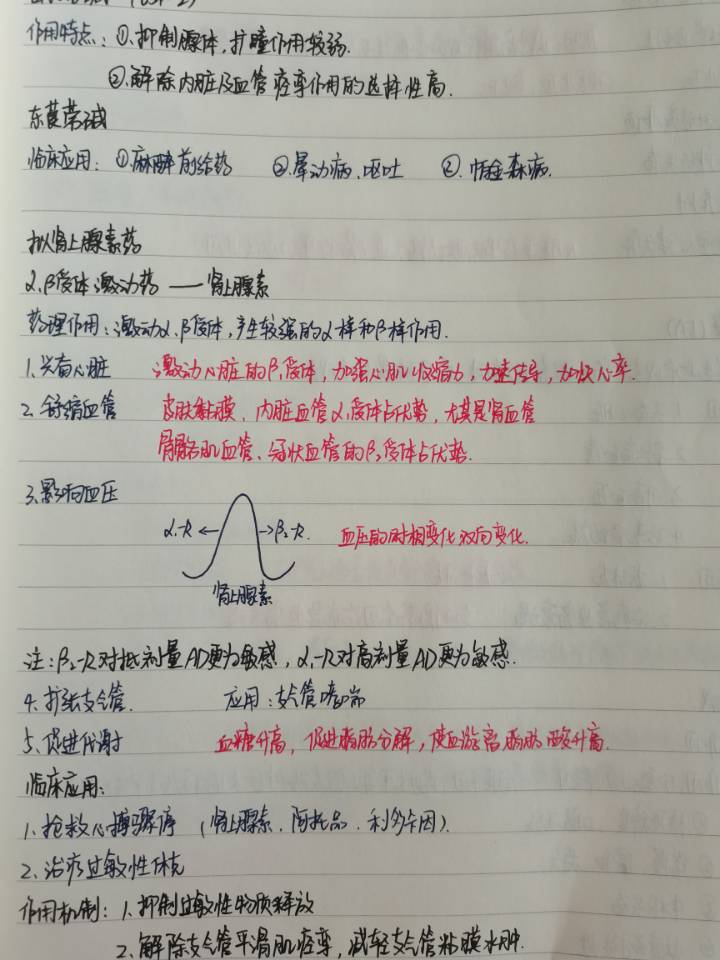 作用特点：①.抑制腺体，扩瞳作用较弱.
②.解除内脏及血管痉挛作用的选择性高.
东莨菪碱
临床应用：①麻醉前给药 ②.晕动病.呕吐 ③.帕金森病.
拟肾上腺素药
α.β受体激动药 —— 肾上腺素
药理作用：激动α.β受体，产生较强的α样和β样作用.
1.兴奋心脏 激动心脏的β₁受体，加强心肌收缩力，加速传导，加快心率.
2.舒缩血管 皮肤黏膜、内脏血管α₁受体占优势，尤其是肾血管
骨骼肌血管、冠状血管的β₂受体占优势.
3.影响血压
α₁-R ← → β₂-R. 血压的时相变化 双向变化.
肾上腺素
注：β₂-R对低剂量AD更为敏感，α₁-R对高剂量AD更为敏感.
4.扩张支气管. 应用：支气管哮喘
5.促进代谢 血糖升高，促进脂肪分解，使血游离脂肪酸升高.
临床应用：
1.抢救心搏骤停（肾上腺素.阿托品.利多卡因）.
2.治疗过敏性休克
作用机制：1.抑制过敏性物质释放
2.解除支气管平滑肌痉挛，减轻支气管粘膜水肿.